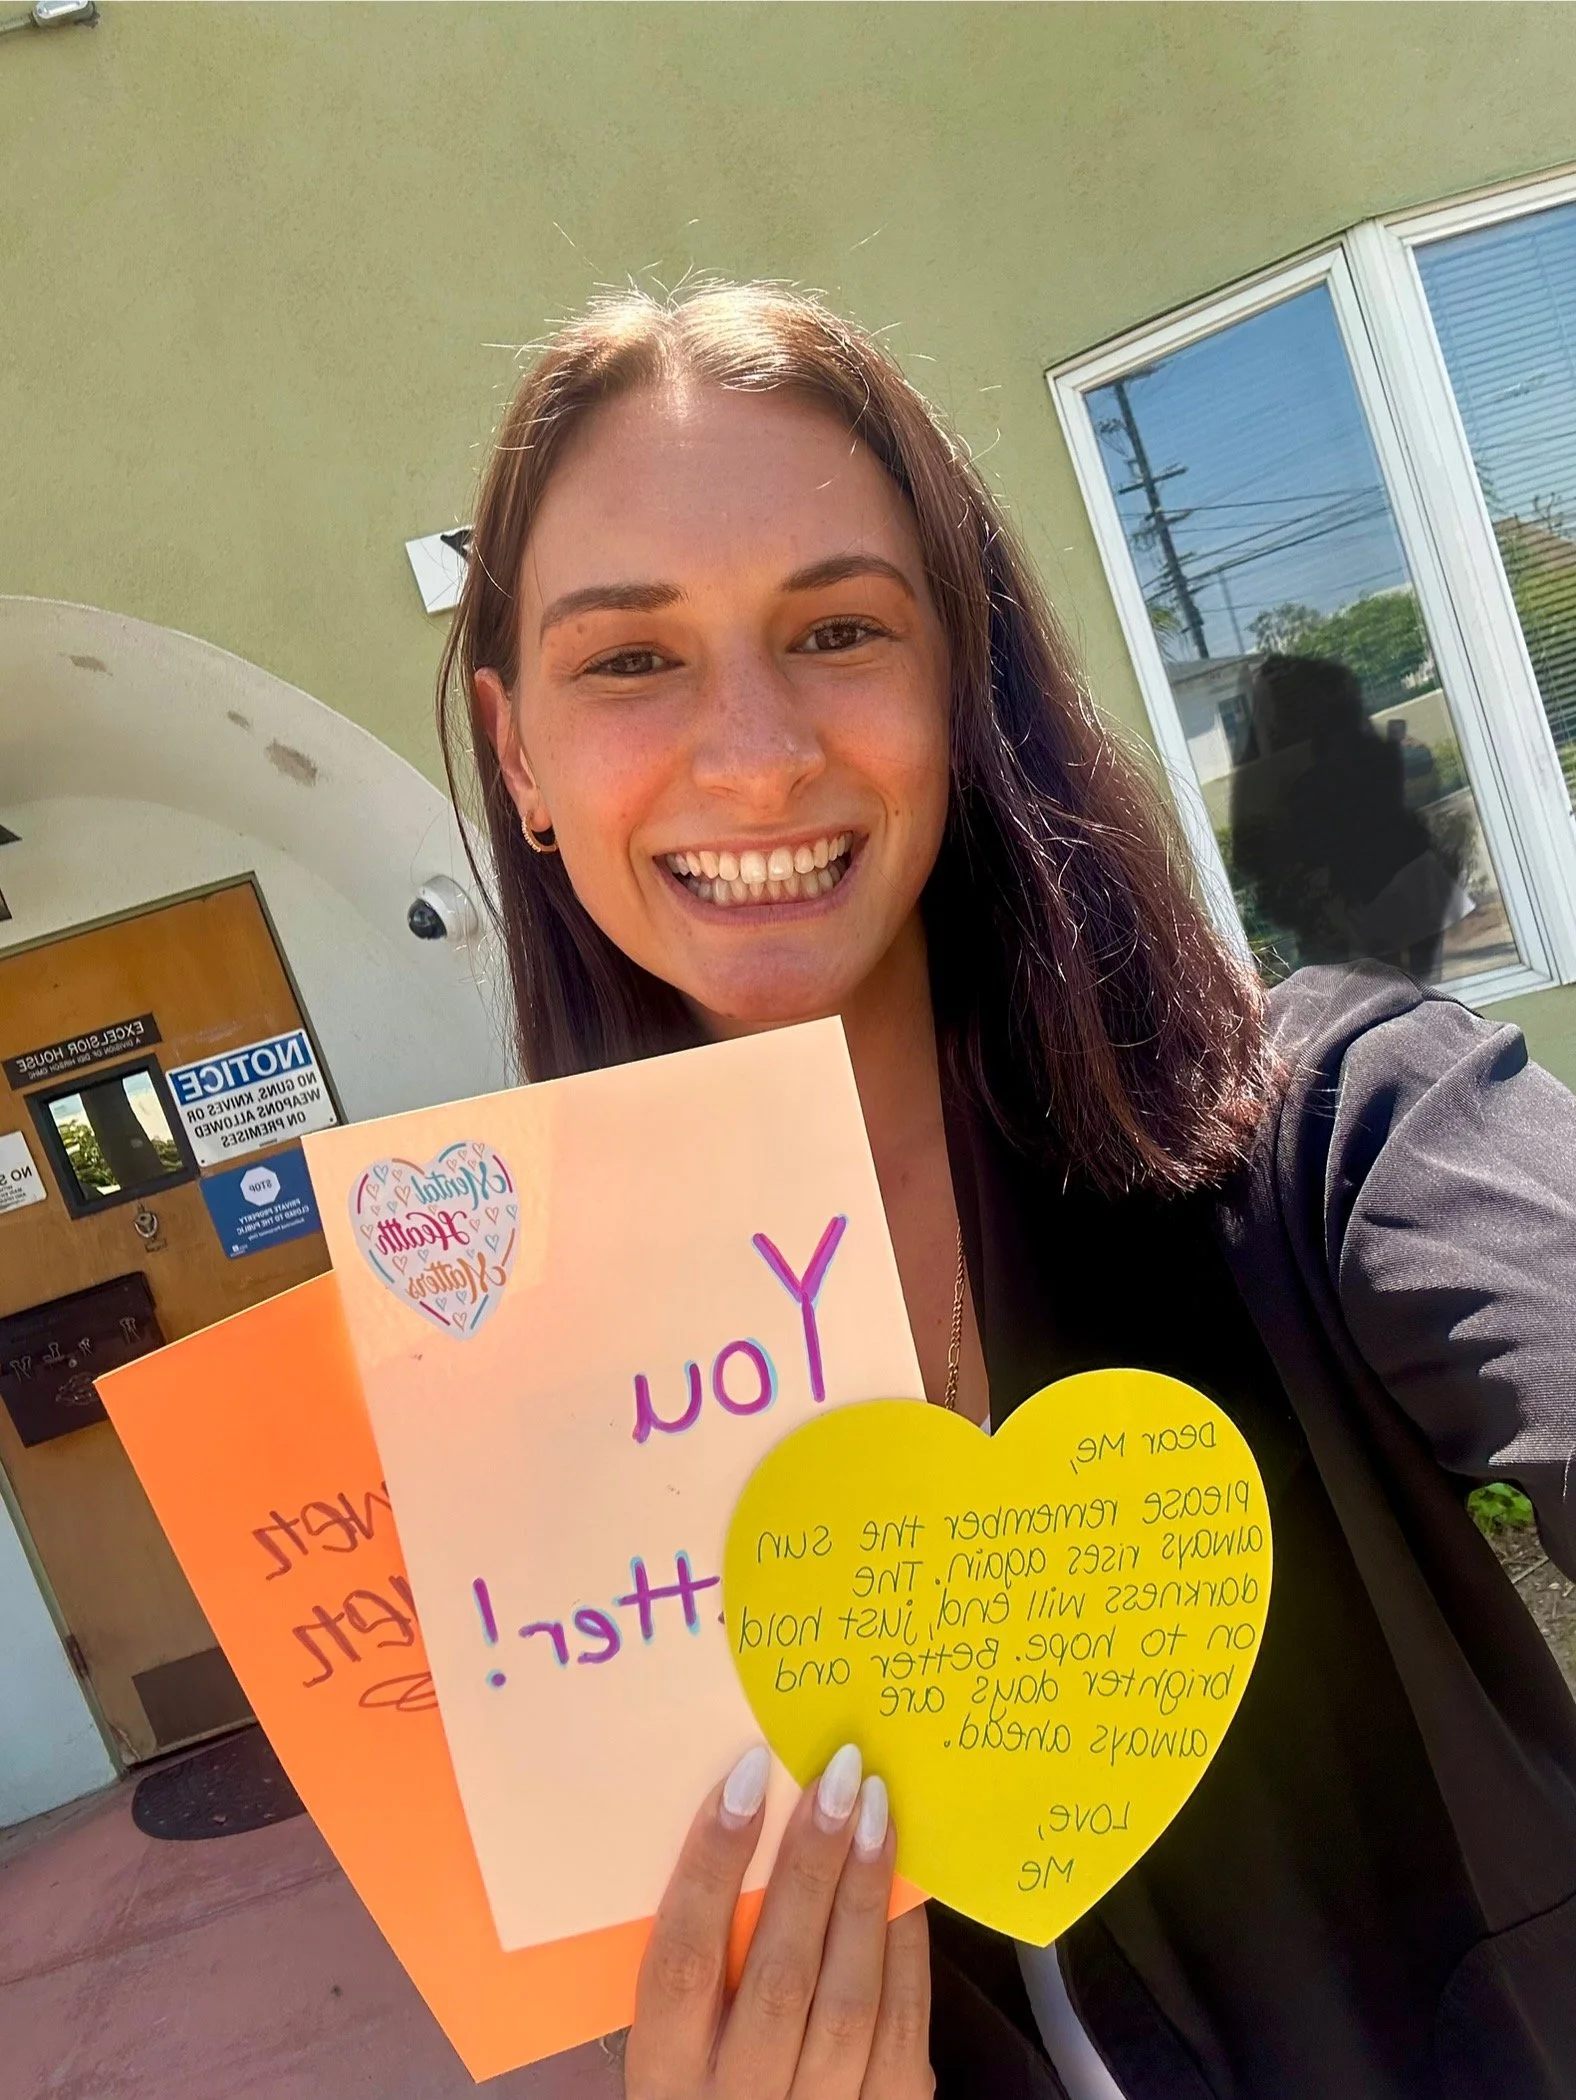 EXCELSIOR HOUSE
A DIVISION OF DIDI HIRSCH CMHC
NOTICE
NO GUNS, KNIVES OR
WEAPONS ALLOWED
ON PREMISES
STOP
PRIVATE PROPERTY
CLOSED TO THE PUBLIC
NO
Mental
Health
Matters
You
tter!
Dear Me,
please remember the sun
always rises again. The
darkness will end, just hold
on to hope. Better and
brighter days are
always ahead.
Love,
Me